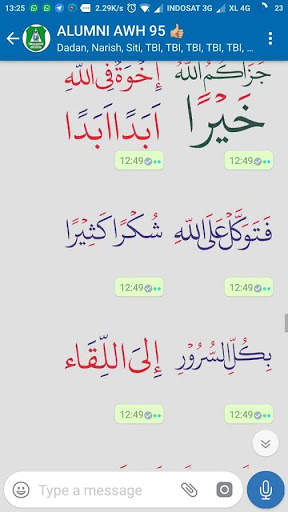 13:25 2.29K/s INDOSAT 3G XL 4G 23
ALUMNI AWH 95 👍🏼
Dadan, Narish, Siti, TBI, TBI, TBI, TBI, TBI, ...
جَزَاكُمُ اللّٰهُ
خَيْرًا
إِخْوَةٌ فِي اللّٰهِ
اَبَدًا اَبَدًا
12:49
12:49
فَتَوَكَّلْ عَلَى اللّٰهِ
شُكْرًا كَثِيْرًا
12:49
12:49
بِكُلِّ السُّرُوْرِ
إِلَى اللِّقَاء
12:49
12:49
Type a message